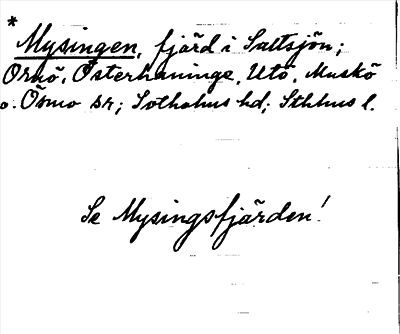 *
Mysingen, fjärd i Saltsjön;
Ornö, Österhaninge, Utö, Muskö
o. Ösmo sr; Sotholms hd; Sthlms l.
Se Mysingsfjärden!